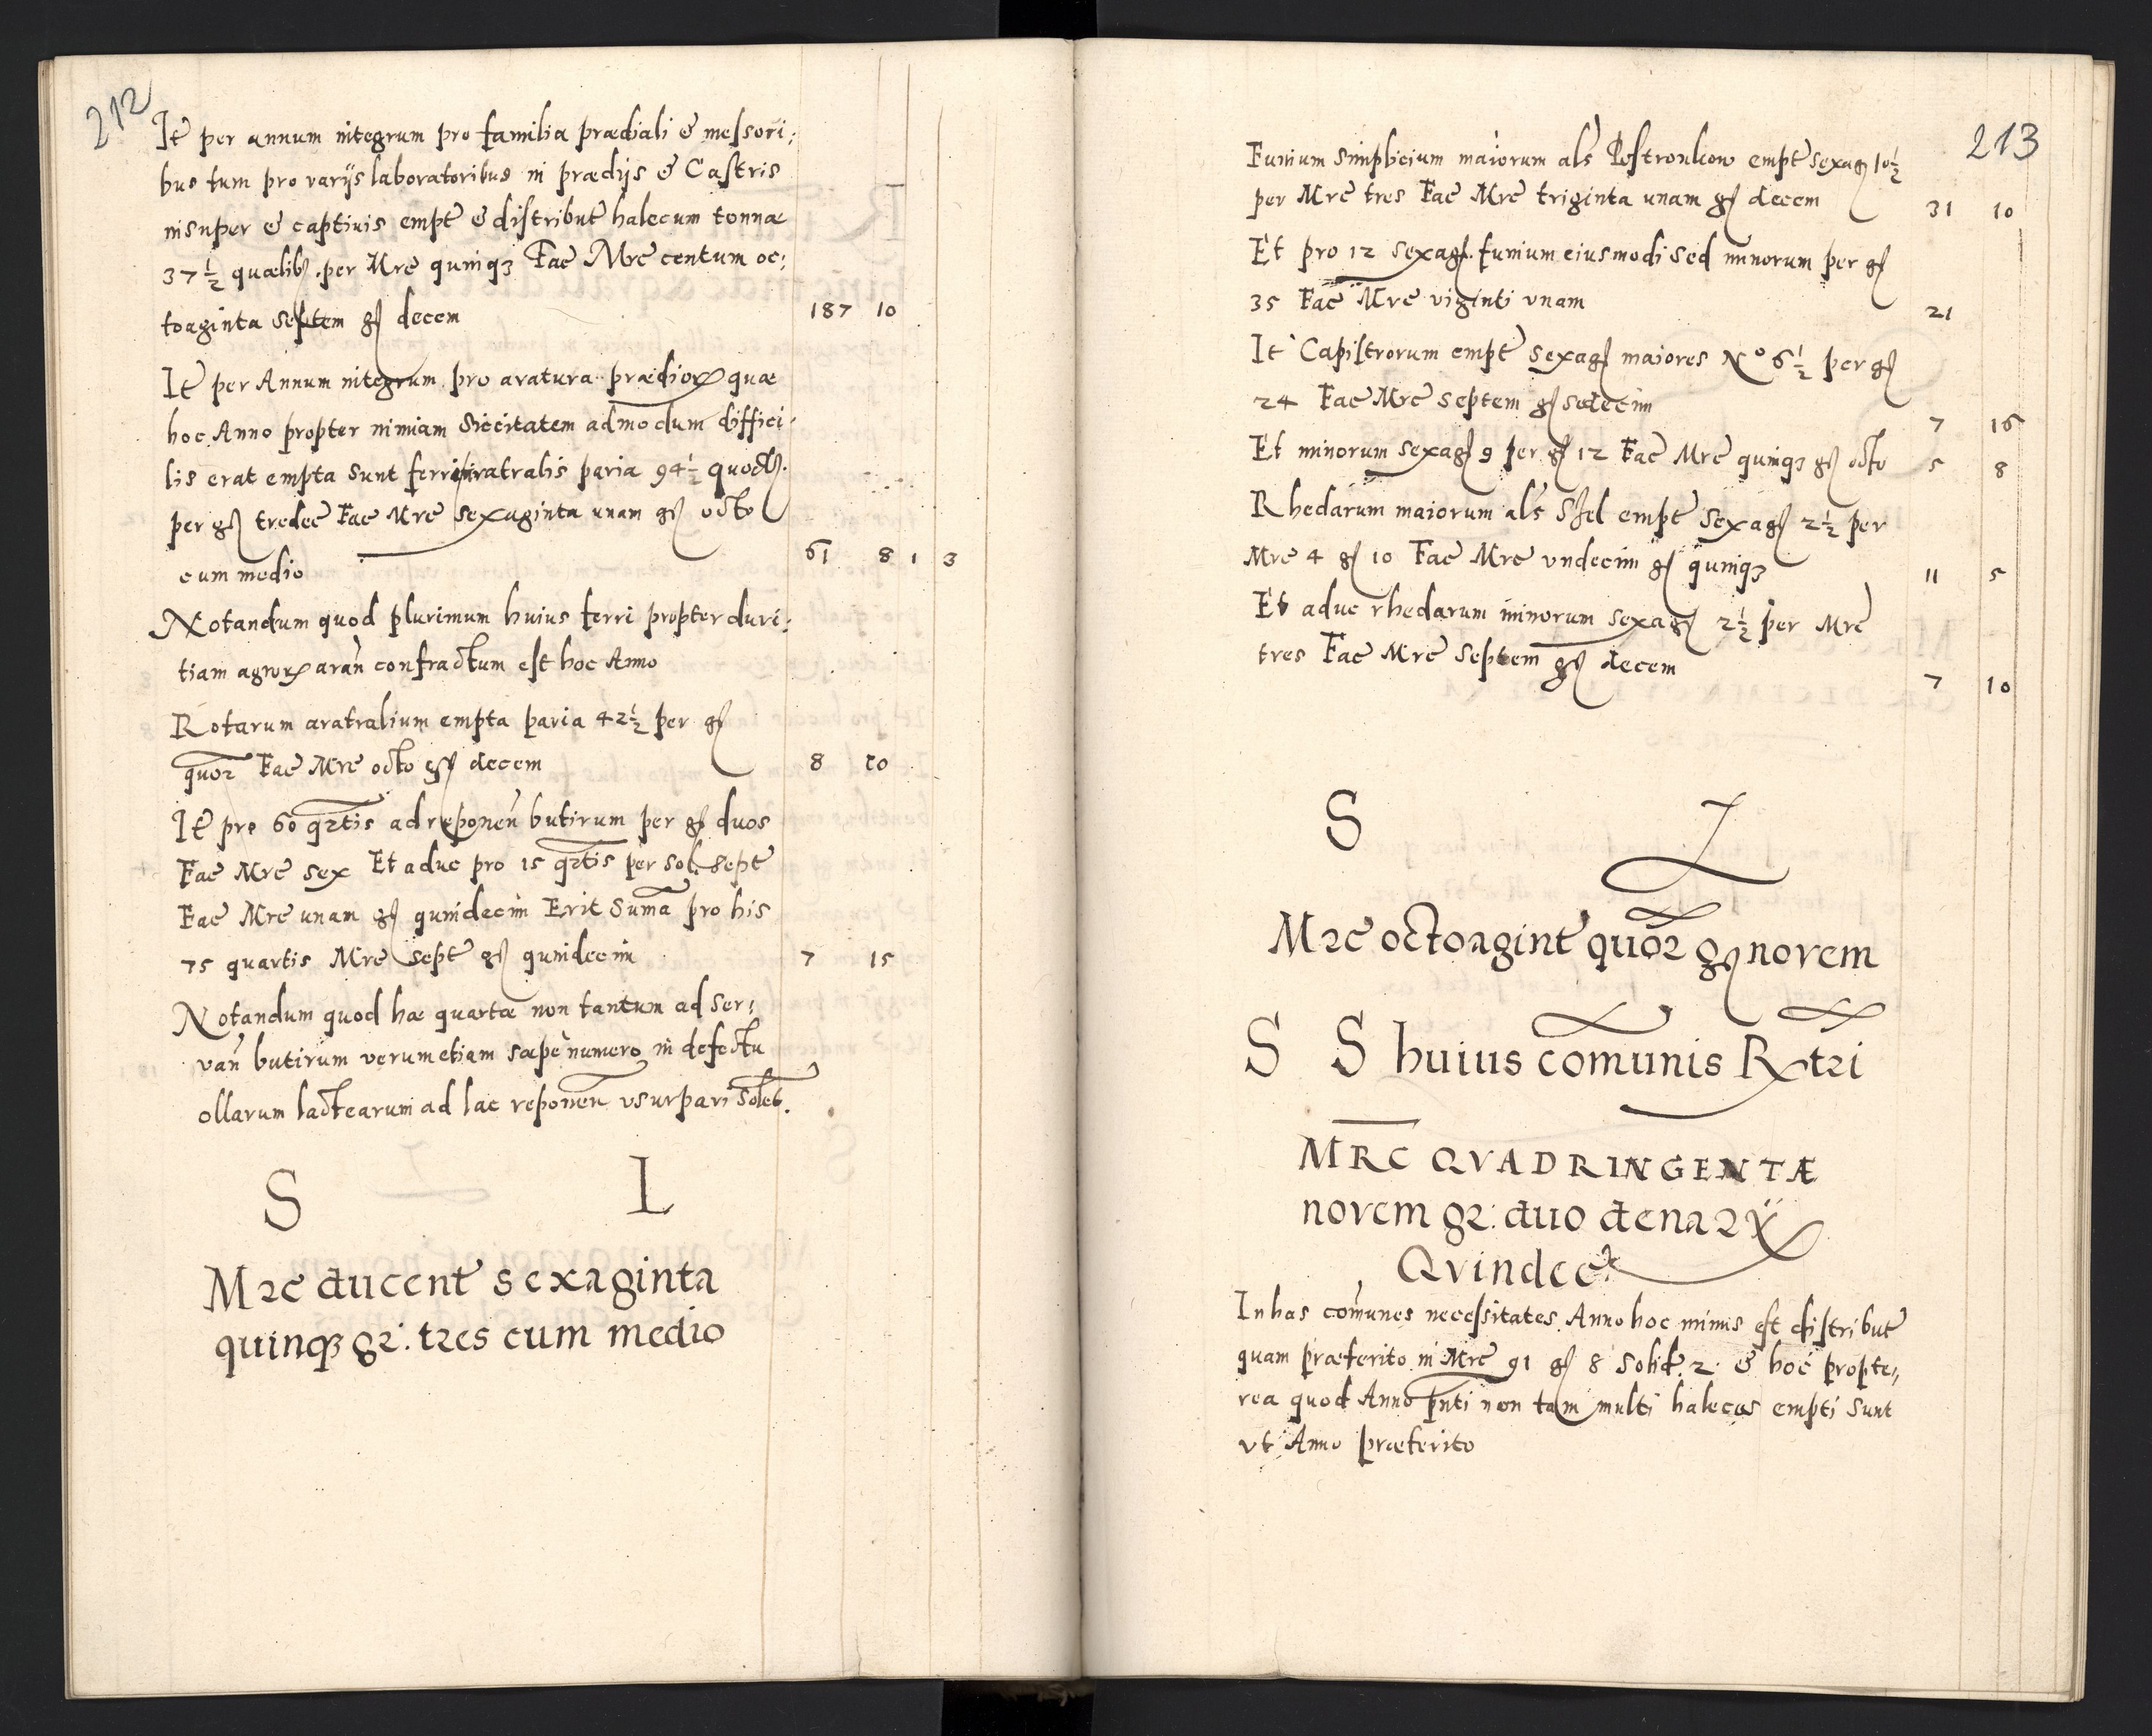 212
It per annum integrum pro familia prædiali & messori:
bus tum pro varijs laboratoribus in prædijs & Castris
insuper & captivis empt & distribut halecum tonnæ
37 ½ quælib. per Mrc quinq3 Fac Mrc centum oc:
toaginta septem gſ decem 187 10
It per Annum integrum pro aratura prædior quæ
hoc Anno propter nimiam siccitatem admodum diffici
lis erat empta sunt ferri aratralis paria 94 ½ quodl.
per gſ tredec Fac Mrc sexaginta unam gſ octo
cum medio 61 8 1 3
Notandum quod plurimum huius ferri propter duri:
tiam agror aran confractum est hoc Anno
Rotarum aratralium empta paria 42 ½ per gſ
quor Fac Mrc octo gſ decem 8 10
It pro 60 qrtis ad reponen butirum per gſ duos
Fac Mrc sex Et aduc pro 15 qrtis per sol. sept
Fac Mrc unam gſ quindecim Erit Suma pro his
75 quartis Mrc sept gſ quindecim 7 15
Notandum quod hæ quartæ non tantum ad ser:
van butirum verumetiam sæpe numero in defectu
ollarum lactearum ad lac reponen usurpari solet.
S L
Mrc ducent sexaginta
quinq3 gr: tres cum medio
213
Funium simplicium maiorum als Postronkow empt sexag 10 ½
per Mrc tres Fac Mrc triginta unam gſ decem 31 10
Et pro 12 sexag. funium eiusmodi sed minorum per gſ
35 Fac Mrc viginti unam 21
It Capistrorum empt sexag maiores No 6 ½ per gſ
24 Fac Mrc septem gſ sedecim 7 16
Et minorum sexag 9 per gſ 12 Fac Mrc quinq3 gſ octo 5 8
Rhedarum maiorum als Sſel empt sexag 2 ½ per
Mrc 4 gſ 10 Fac Mrc undecim gſ quinq3 11 5
Et aduc rhedarum minorum sexag 2 ½ per Mrc
tres Fac Mrc septem gſ decem 7 10
S L
Mrc octoagint quor gſ novem
S S huius comunis Rxtri
MRC QVADRINGENTÆ
novem gr: duo denar
Qvindec
In has comunes necessitates Anno hoc minus est distribut
quam præterito in Mrc 91 gſ 8 solid. 2 & hoc propte,,
rea quod Anno pnti non tam multi haleces empti sunt
vt Anno præterito